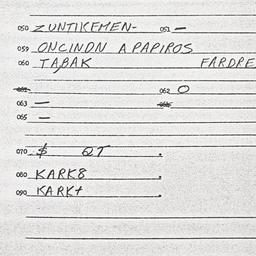 050 ZUNTIKEMEN- 051 —
059 ONCINDN A PAPIROS
060 TABAK FARDPE
062 O
063 —
065 —
070 $ QT .
080 KARK8 .
090 KARKt .